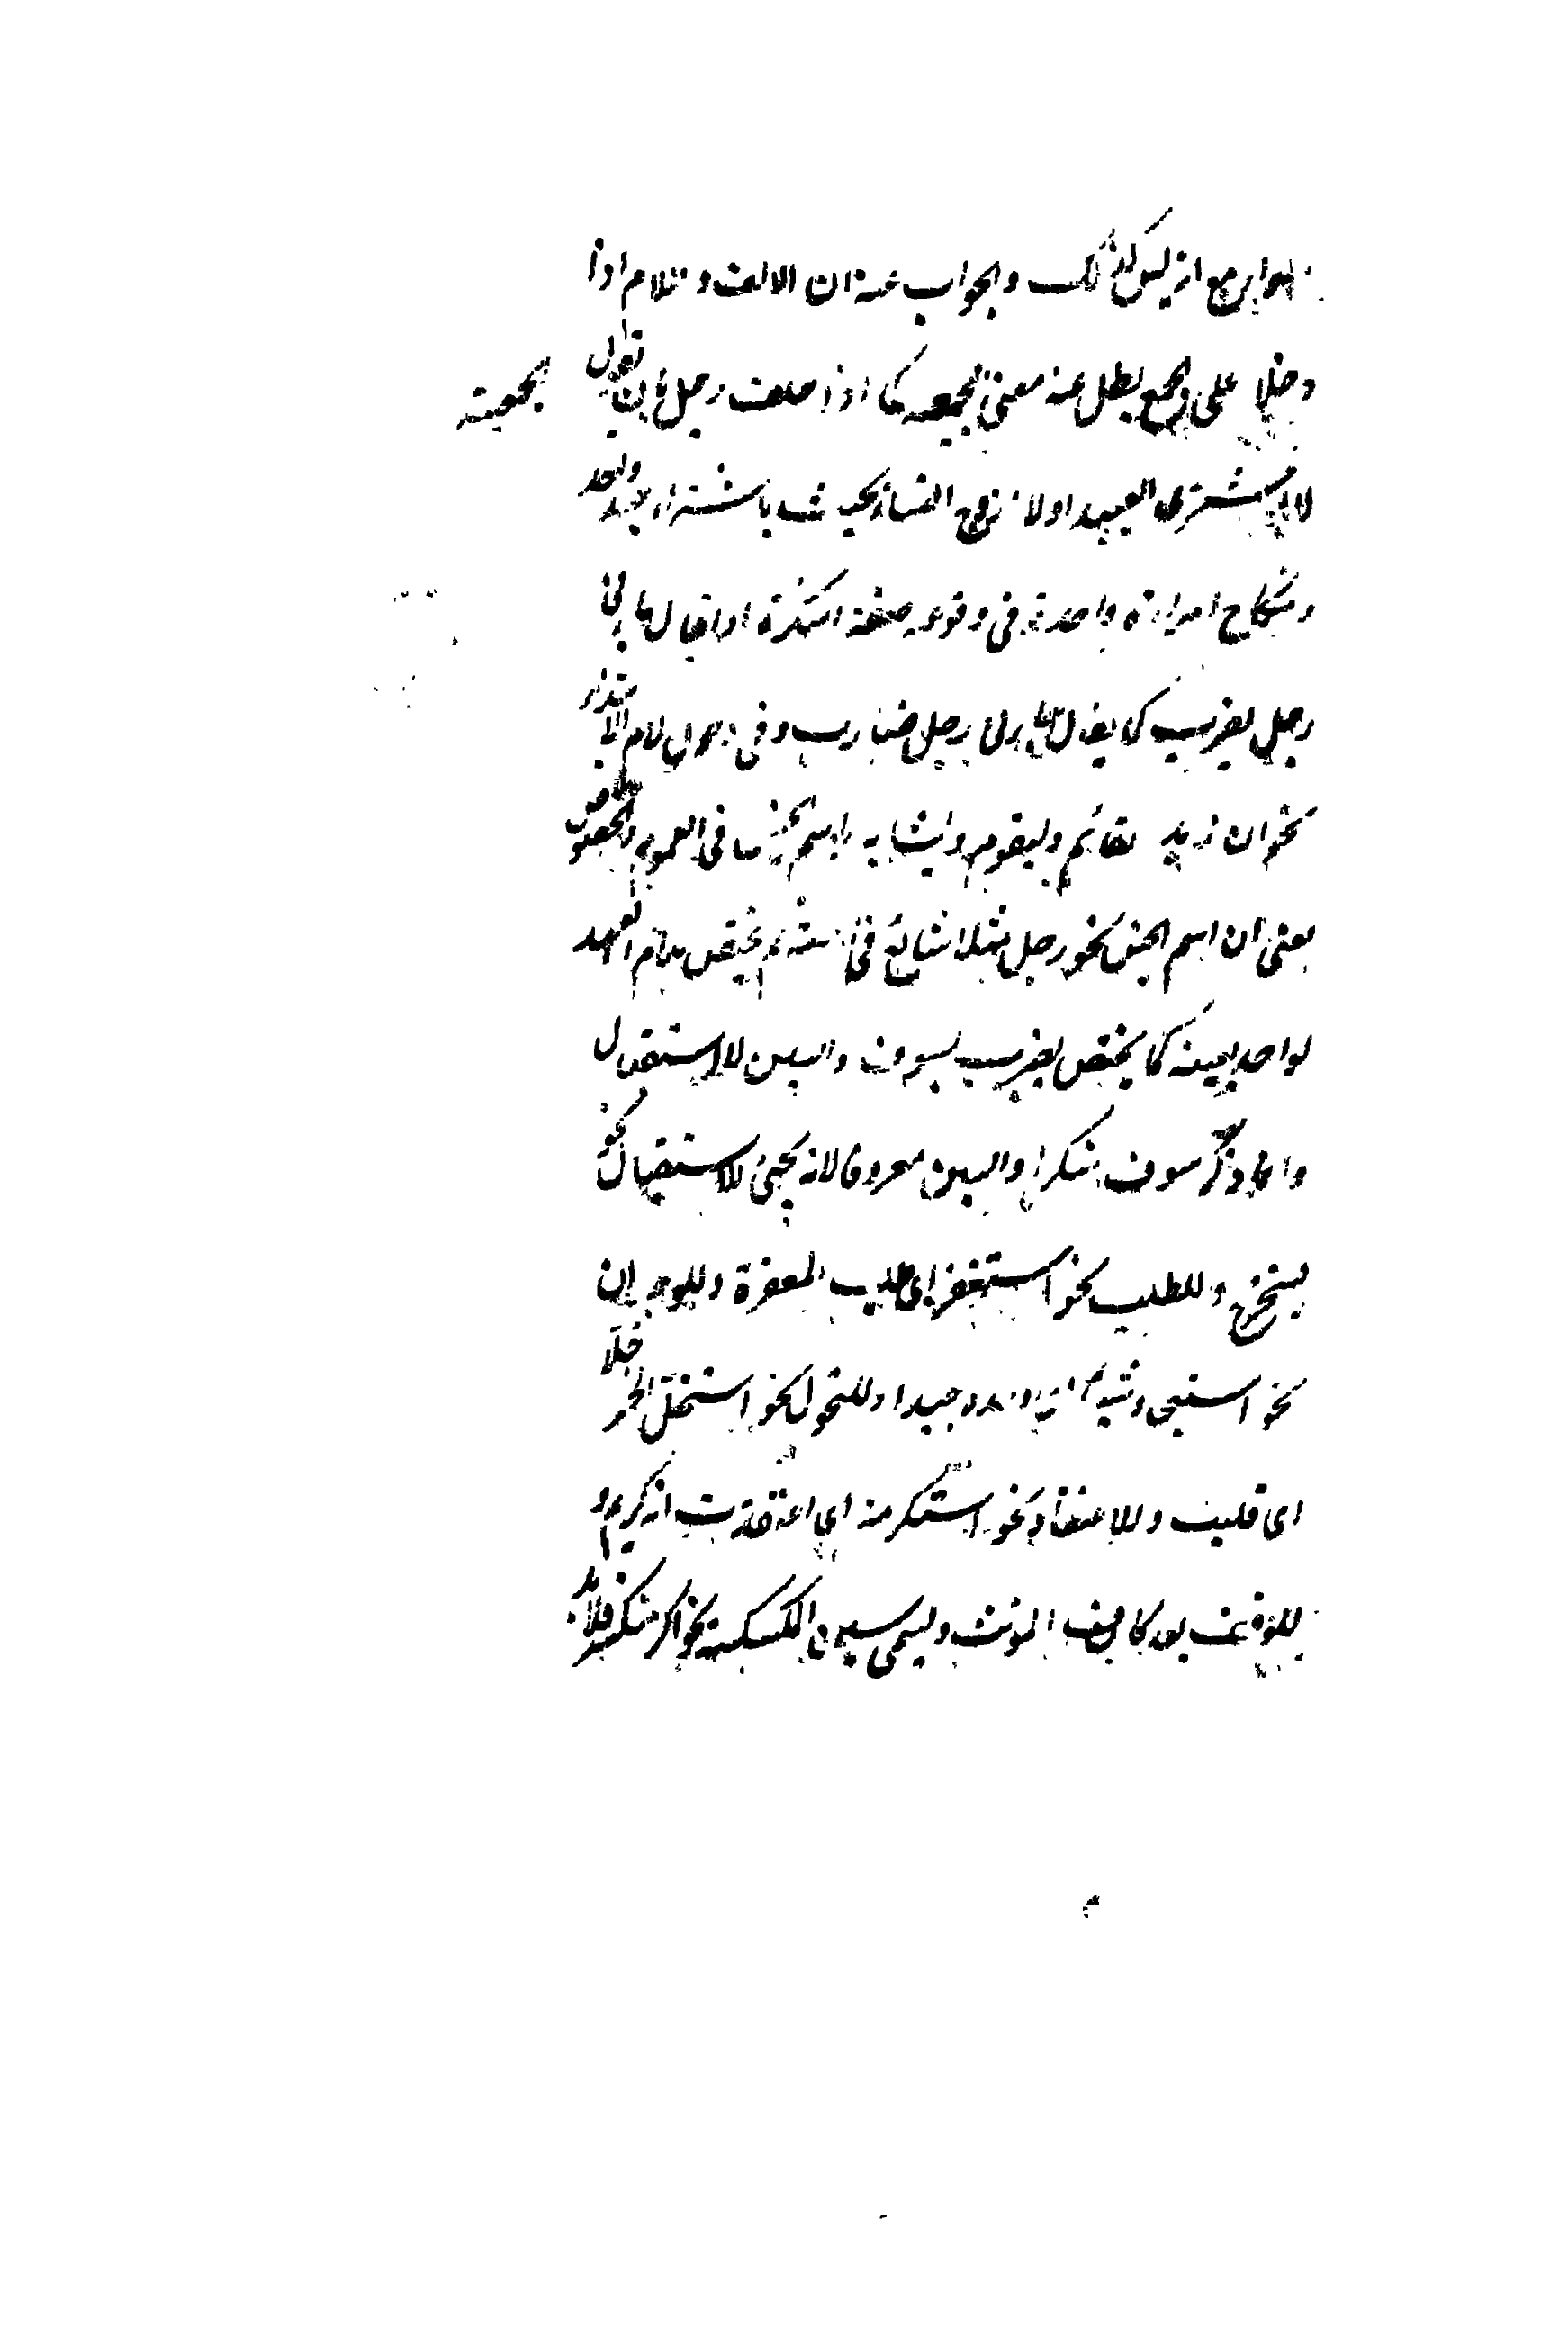 مع انه ليس كذلك والجواب عنه ان الالف واللام اذا
دخلتا على الجمع يبطل عنه معنى الجمعية كما اذا حلف رجل بان يقول
الجمعية
لا اشترى العبيد اولا تزوج النساء يحنث باشتراء عبد واحد
ونكاح امراة واحدة وفى وقوعه صفة النكرة اذ يقال جاءنى
رجل يضرب كما يقال جاءنى رجل ضارب وفى دخول لام الابتداء
نحو ان زيد لقائم وليقوم وايشابه باسم الجنس فى العموم والخصوص
يعنى ان اسم الجنس نحو رجل مثلا شائع فى ثم يختص بلام العهد
لواحد بعينه كما يختص يضرب بسوف والسين للاستقبال
وانما ذكر سوف منكرا والسين معروفا لانه يجئ للاستقبال نحو
سيخرج وللطلب نحو استغفر اى طلب المغفرة وللوجدان
نحو استجى جيدا وللتحول نحو استخل الخمر خلا
اى قلبت وللاعتقاد نحو استكرمته اى اعتقدت انه كريم و
للوقف بعد كاف المونث ويسمى سين الكسكسة نحو اكرمتكس فلابد